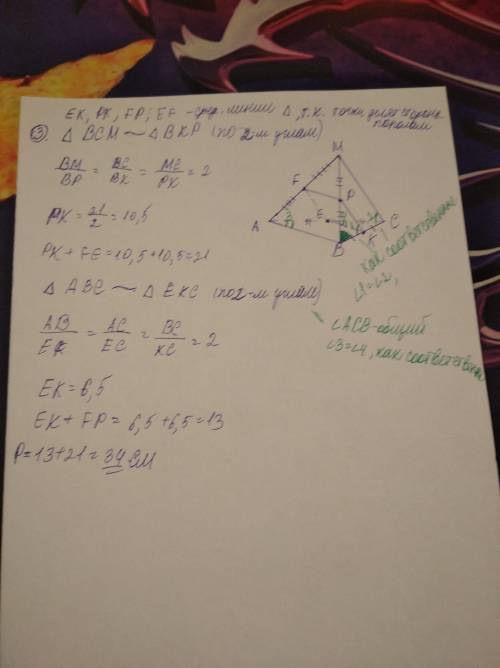 EK; PK, FP; EF - сред. линии △, т.к. точки делят стороны
пополам
③. △ BCM ~ △ BKP (по 2-м углам)
BM/BP = BC/BK = MC/PK = 2
PK = 21/2 = 10,5
PK + FE = 10,5 + 10,5 = 21
△ ABC ~ △ EKC (по 2-м углам)
AB/EK = AC/EC = BC/KC = 2
EK = 6,5
EK + FP = 6,5 + 6,5 = 13
P = 13 + 21 = 34 см
M
F
P
A
E
C
K
B
как соответственные
∠1=∠2,
∠ACB - общий
∠3=∠4, как соответственные